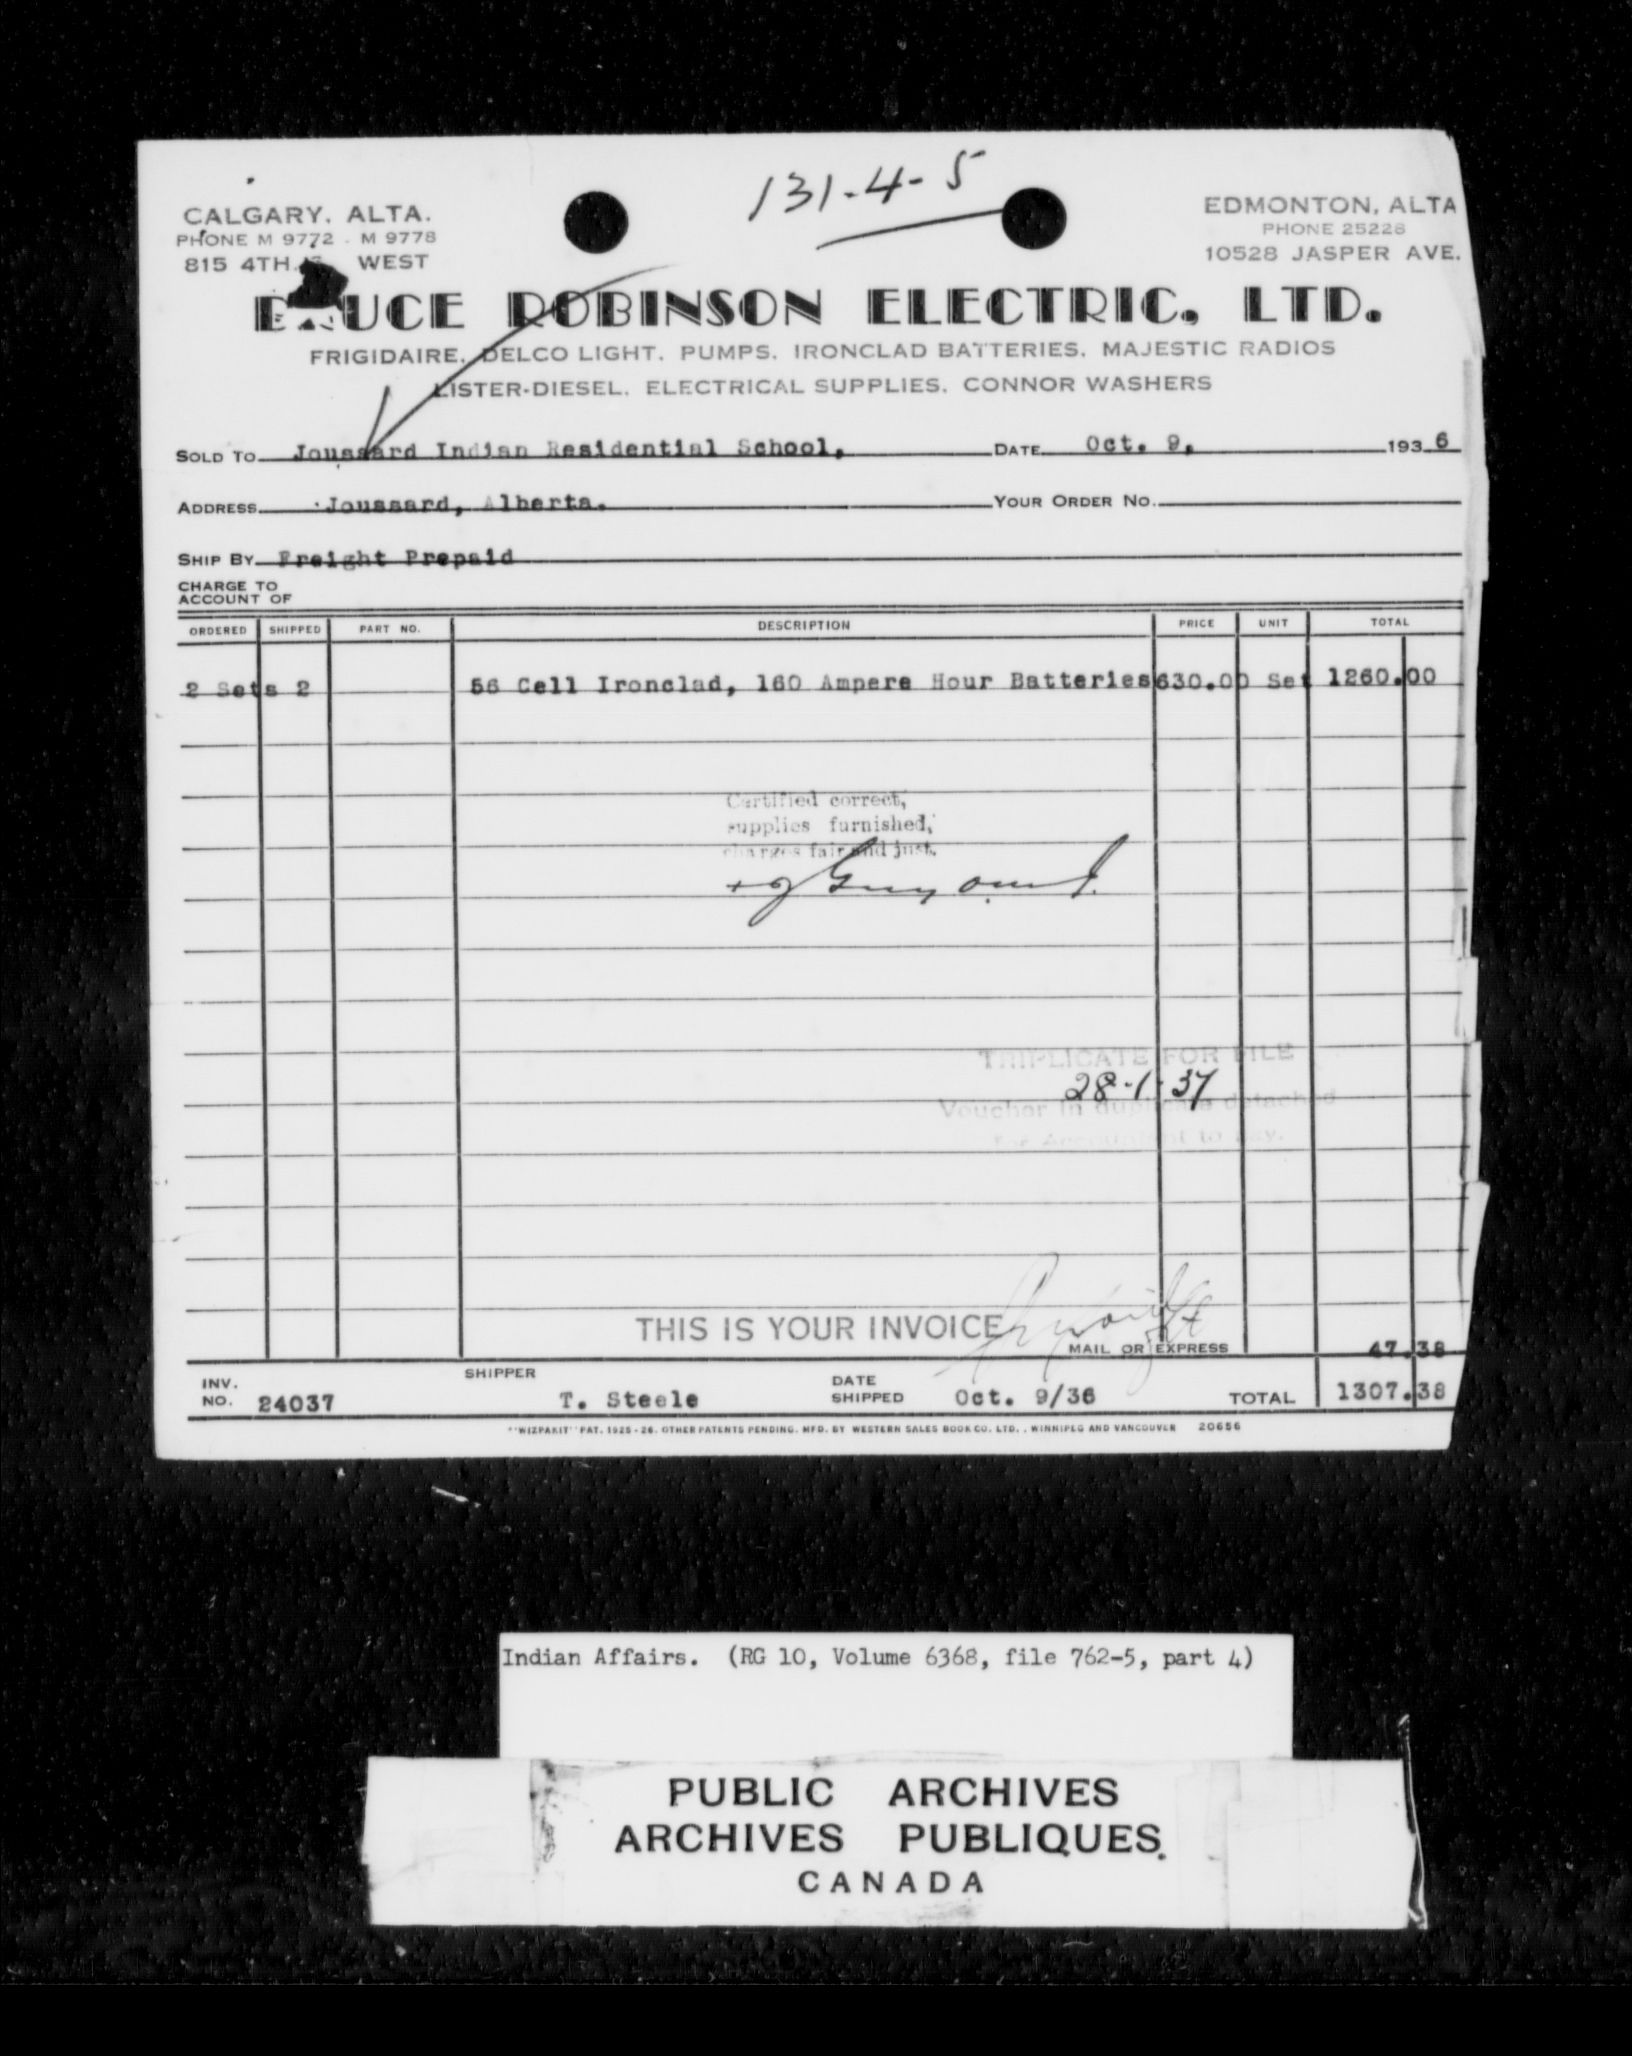 131-4-5
CALGARY, ALTA.
PHONE M 9772 - M 9778
815 4TH WEST
EDMONTON, ALTA
PHONE 25228
10528 JASPER AVE.
UCE ROBINSON ELECTRIC, LTD.
FRIGIDAIRE, DELCO LIGHT, PUMPS, IRONCLAD BATTERIES, MAJESTIC RADIOS
LISTER-DIESEL, ELECTRICAL SUPPLIES, CONNOR WASHERS
SOLD TO Joussard Indian Residential School, DATE Oct. 9, 1936
ADDRESS Joussard, Alberta. YOUR ORDER NO.
SHIP BY Freight Prepaid
CHARGE TO
ACCOUNT OF
ORDERED SHIPPED PART NO. DESCRIPTION PRICE UNIT TOTAL
2 Sets 2 56 Cell Ironclad, 160 Ampere Hour Batteries 630.00 Set 1260.00
Certified correct,
supplies furnished,
charges fair and just.
TRIPLICATE FOR FILE
28-1-37
Voucher in duplicate detached
for Accountant to pay.
THIS IS YOUR INVOICE
MAIL OR EXPRESS 47.38
INV. NO. 24037 SHIPPER T. Steele DATE SHIPPED Oct. 9/36 TOTAL 1307.38
"WIZPAKIT" PAT. 1925-26. OTHER PATENTS PENDING. MFD. BY WESTERN SALES BOOK CO. LTD., WINNIPEG AND VANCOUVER 20656
Indian Affairs. (RG 10, Volume 6368, file 762-5, part 4)
PUBLIC ARCHIVES
ARCHIVES PUBLIQUES
CANADA